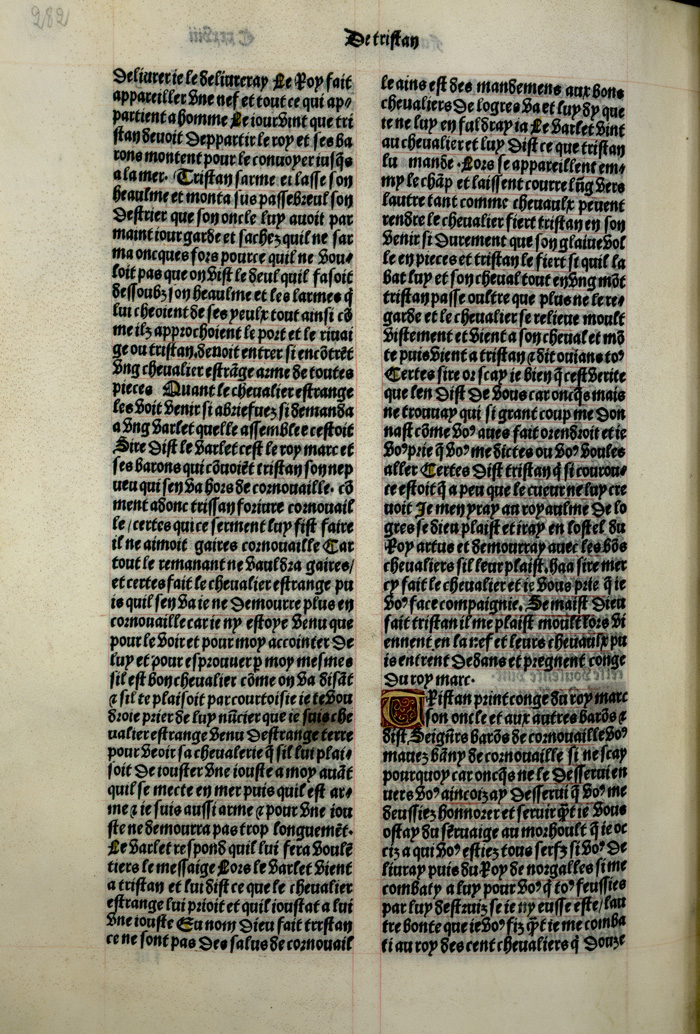 282
De tristan
Deliurer ie le deliureray Le Roy fait
appareiller vne nef et tout ce qui ap⸗
partient a homme Le iour vint que tri
stan deuoit departir le roy et ses ba
rons montent pour le conuoyer iusq̃s
a la mer. Tristan sarme et lasse son
heaulme et monta sus passebreul son
destrier que son oncle luy auoit par
maint iour garde et sachez quil ne sar
ma oncques fors pource quil ne vou⸗
loit pas que on vist le deul quil fasoit
dessoubz son heaulme et les larmes q̃
lui cheoient de ses yeulx tout ainsi cõ
me ilz approchoient le port et le riuai
ge ou tristan deuoit entrer si encõtrẽt
vng cheualier estrãge arme de toutes
pieces Quant le cheualier estrange
les voit venir si abriefuez si demanda
a vng varlet quelle assemblee cestoit
Sire dist le varlet cest le roy marc et
ses barons qui cõuoiẽt tristan son nep
ueu qui sen va hors de cornouaille. cõ
ment adonc trissan foriure cornouail
le / certes qui ce serment luy fist faire
il ne aimoit gaires cornouaille Car
tout le remanant ne vauldra gaires /
et certes fait le cheualier estrange pu
is quil sen va ie ne demourre plus en
cornouaille car ie ny estoye venu que
pour le voir et pour moy accointer de
luy et pour esprouuer p moy mesmes
sil est bon cheualier cõme on va disãt
⁊ sil te plaisoit par courtoisie ie te vou
droie prier de luy nũcier que ie suis che
ualier estrange venu destrange terre
pour veoir sa cheualerie q̃ sil lui plai⸗
soit de iouster vne iouste a moy auãt
quil se mecte en mer puis quil est ar⸗
me ⁊ ie suis aussi arme ⁊ pour vne iou
ste ne demourra pas trop longuemẽt.
Le varlet respond quil lui fera voulẽ
tiers le messaige Lors le varlet vient
a tristan et lui dist ce que le cheualier
estrange lui prioit et quil ioustat a lui
vne iouste En nom dieu fait trrstan
ce ne sont pas des salus de cornouail
le ains est des mandemens aux bons
cheualiers de logres va et luy dy que
ie ne luy en fauldray ia Le varlet vint
au cheualier et luy dist ce que tristan
lu mande. Lors se appareillent em⸗
my le chãp et laissent courre lũg vers
lautre tant comme cheuaulx peuent
rendre le cheualier fiert tristan en son
venir si durement que son glaiue vol
le en pieces et tristan le fiert si quil la
bat luy et son cheual tout en vng mõt
tristan passe oultre que plus ne le re⸗
garde et le cheualier se relieue moult
vistement et vient a son cheual et mõ
te puis vient a tristan ⁊ dit oiuans toꝰ
Certes sire or scay ie bien q̃ cest verite
que len dist de vous car oncq̃s mais
ne trouuay qui si grant coup me don
nast cõme voꝰ aues fait orendroit et ie
voꝰ prie q̃ voꝰ me dictes ou voꝰ voules
aller Certes dist tristan q̃ si courou⸗
ce estoit q̃ a peu que le cueur ne luy cre
uoit Je men yray au royaulme de lo
gres se dieu plaist et iray en lostel du
Roy artus et demourray auec les bõs
cheualiers sil leur plaist, haa sire mer
cy fait le cheualier et ie vous prie q̃ ie
voꝰ face compaignie. Se maist dieu
fait tristan il me plaist moult lors vi
ennent en la nef et leurs cheuaulx pu
is entrent dedans et pregnent conge
du roy marc.
Tristan print conge du roy marc
son oncle et aux autres barõs ⁊
dist. Seigñrs barõs de cornouaille voꝰ
mauez bãny de cornouaille si ne scay
pourquoy car oncq̃s ne le desserui en
uers voꝰ aincoizay desserui q̃ voꝰ me
deussiez honnorer et seruir q̃t ie vous
ostay du seruaige au morhoult q̃ ie oc
ciz a qui voꝰ estiez tous serfz si voꝰ de
liuray puis du Roy de norgalles si me
combaty a luy pour voꝰ q̃ toꝰ feussies
par luy destruiz se ie ny eusse este / lau
tre bonte que ie voꝰ fiz q̃t ie me comba
ti au roy des cent cheualiers q̃ douze